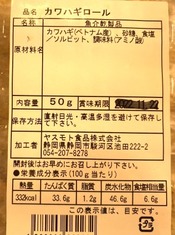 品名 カワハギロール
名称 魚介乾製品
原材料名 カワハギ(ベトナム産)、砂糖、食塩
/ソルビット、調味料(アミノ酸)
内容量 50g 賞味期限 2022.11.22
保存方法 直射日光・高温多湿を避けて保存して
下さい。
加工者 ヤスモト食品株式会社
静岡県静岡市駿河区池田222-2
054-207-8278
開封後はお早めにお召し上がり下さい。
●栄養成分表示(100g当たり)
熱量 たんぱく質 脂質 炭水化物 食塩相当量
332kcal 33.6g 1.2g 46.6g 6.6g
この表示値は、目安です。
プラ